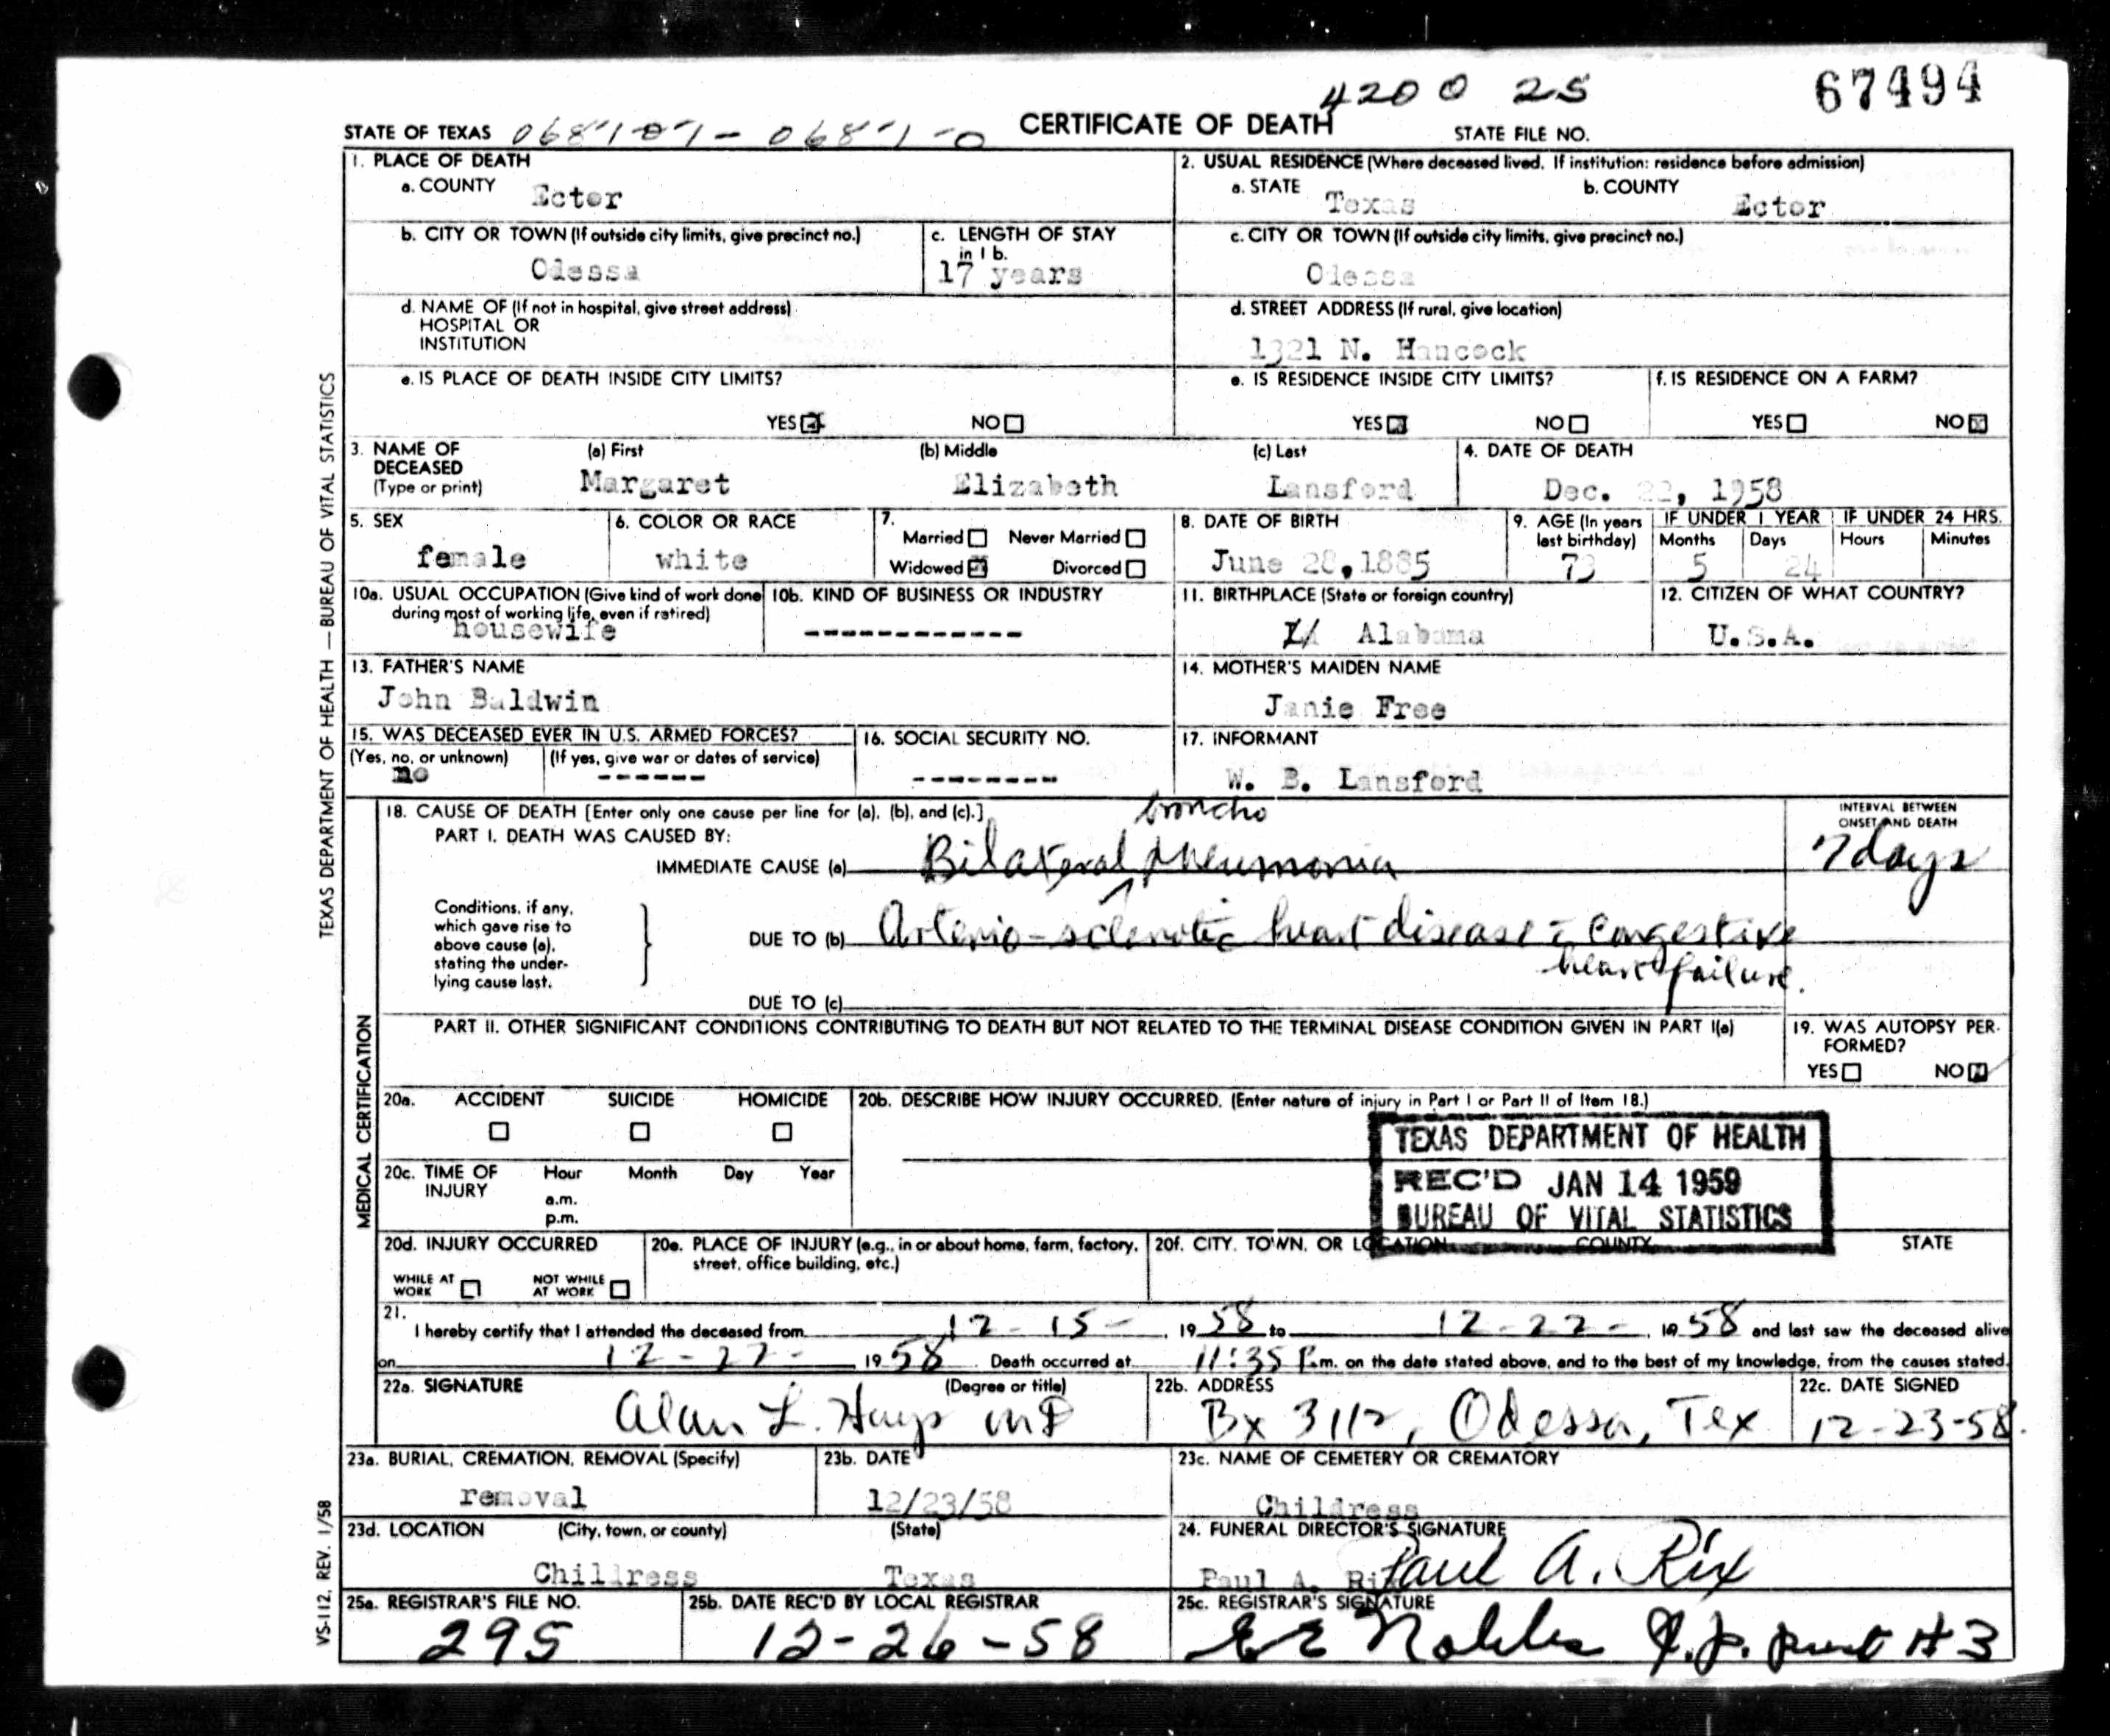 4200 25
67494
STATE OF TEXAS 068707-0687-0 CERTIFICATE OF DEATH STATE FILE NO.
TEXAS DEPARTMENT OF HEALTH — BUREAU OF VITAL STATISTICS
1. PLACE OF DEATH
a. COUNTY Ector
2. USUAL RESIDENCE (Where deceased lived. If institution: residence before admission)
a. STATE Texas b. COUNTY Ector
b. CITY OR TOWN (If outside city limits, give precinct no.) Odessa
c. LENGTH OF STAY in 1 b. 17 years
c. CITY OR TOWN (If outside city limits, give precinct no.) Odessa
d. NAME OF (If not in hospital, give street address)
HOSPITAL OR
INSTITUTION
d. STREET ADDRESS (If rural, give location)
1321 N. Hancock
e. IS PLACE OF DEATH INSIDE CITY LIMITS?
YES NO
e. IS RESIDENCE INSIDE CITY LIMITS?
YES NO
f. IS RESIDENCE ON A FARM?
YES NO
3. NAME OF DECEASED (Type or print)
(a) First Margaret
(b) Middle Elizabeth
(c) Last Lansford
4. DATE OF DEATH
Dec. 22, 1958
5. SEX
female
6. COLOR OR RACE
white
7.
Married Never Married
Widowed Divorced
8. DATE OF BIRTH
June 28, 1885
9. AGE (In years last birthday) 73
IF UNDER 1 YEAR Months 5 Days 24
IF UNDER 24 HRS. Hours Minutes
10a. USUAL OCCUPATION (Give kind of work done during most of working life, even if retired)
housewife
10b. KIND OF BUSINESS OR INDUSTRY
------------
11. BIRTHPLACE (State or foreign country)
Alabama
12. CITIZEN OF WHAT COUNTRY?
U.S.A.
13. FATHER'S NAME
John Baldwin
14. MOTHER'S MAIDEN NAME
Janie Free
15. WAS DECEASED EVER IN U.S. ARMED FORCES?
(Yes, no, or unknown) no
(If yes, give war or dates of service) ------
16. SOCIAL SECURITY NO.
--------
17. INFORMANT
W. B. Lansford
MEDICAL CERTIFICATION
18. CAUSE OF DEATH [Enter only one cause per line for (a), (b), and (c).]
PART I. DEATH WAS CAUSED BY:
INTERVAL BETWEEN ONSET AND DEATH
broncho
IMMEDIATE CAUSE (a) Bilateral pneumonia 7 days
Conditions, if any, which gave rise to above cause (a), stating the underlying cause last.
DUE TO (b) Arterio-sclerotic heart disease c̄ congestive
heart failure.
DUE TO (c)
PART II. OTHER SIGNIFICANT CONDITIONS CONTRIBUTING TO DEATH BUT NOT RELATED TO THE TERMINAL DISEASE CONDITION GIVEN IN PART I(a)
19. WAS AUTOPSY PERFORMED?
YES NO
20a. ACCIDENT SUICIDE HOMICIDE
20b. DESCRIBE HOW INJURY OCCURRED. (Enter nature of injury in Part I or Part II of Item 18.)
TEXAS DEPARTMENT OF HEALTH
REC'D JAN 14 1959
BUREAU OF VITAL STATISTICS
20c. TIME OF INJURY Hour Month Day Year
a.m.
p.m.
20d. INJURY OCCURRED
WHILE AT WORK NOT WHILE AT WORK
20e. PLACE OF INJURY (e.g., in or about home, farm, factory, street, office building, etc.)
20f. CITY, TOWN, OR LOCATION COUNTY STATE
21.
I hereby certify that I attended the deceased from 12-15-, 1958 to 12-22-, 1958 and last saw the deceased alive
on 12-22- 1958. Death occurred at 11:35 P.m. on the date stated above, and to the best of my knowledge, from the causes stated.
22a. SIGNATURE (Degree or title)
Alan L. Hays MD
22b. ADDRESS
Bx 3112, Odessa, Tex
22c. DATE SIGNED
12-23-58.
23a. BURIAL, CREMATION, REMOVAL (Specify)
removal
23b. DATE
12/23/58
23c. NAME OF CEMETERY OR CREMATORY
Childress
23d. LOCATION (City, town, or county) (State)
Childress Texas
24. FUNERAL DIRECTOR'S SIGNATURE
Paul A. Rix Paul A. Rix
25a. REGISTRAR'S FILE NO.
295
25b. DATE REC'D BY LOCAL REGISTRAR
12-26-58
25c. REGISTRAR'S SIGNATURE
E E Nobles J.P. Prect #3
VS-112, REV. 1/58